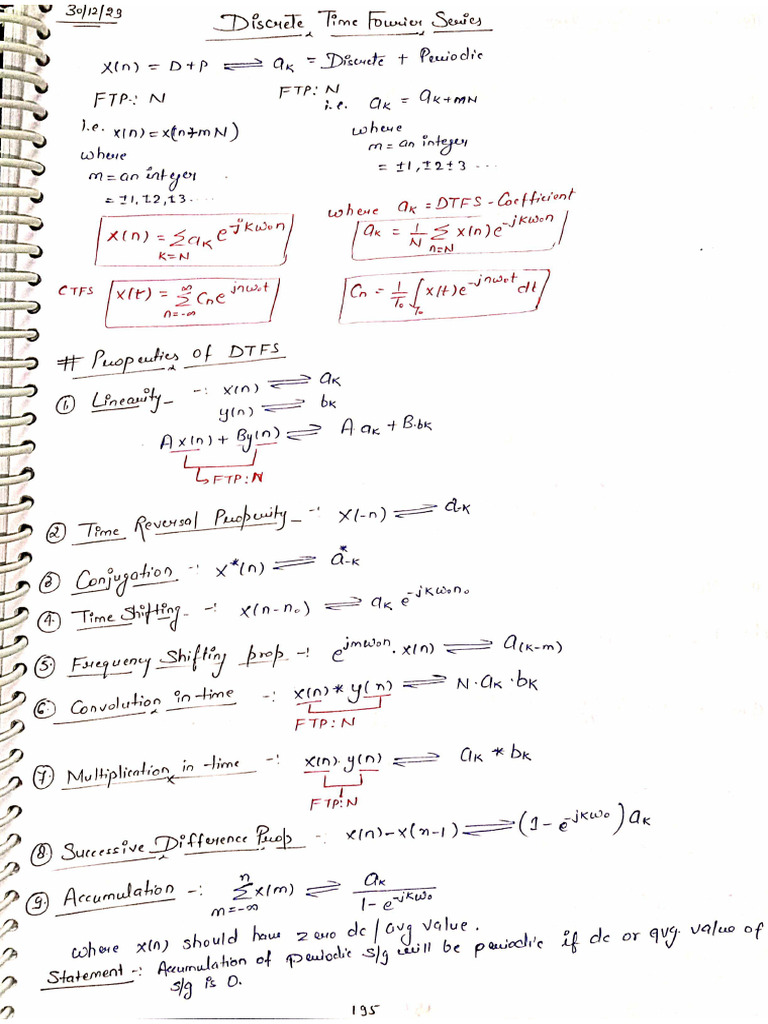 30/12/23
Discrete Time Fourier Series
x(n) = D+P ⇌ aₖ = Discrete + Periodic
FTP:: N FTP: N
i.e. aₖ = aₖ₊ₘN
i.e. x(n) = x(n+mN) where
where m = an integer
m = an integer = ±1, ±2 ±3 ....
= ±1, ±2, ±3....
where aₖ = DTFS - Coefficient
x(n) = Σ aₖ e^(jkω₀n) k=N aₖ = 1/N Σ x(n) e^(-jkω₀n) n=N
CTFS x(t) = Σ Cₙ e^(jnω₀t) n=-∞ ∞ Cₙ = 1/T₀ ∫T₀ x(t) e^(-jnω₀t) dt
# Properties of DTFS
① Linearity -: x(n) ⇌ aₖ
y(n) ⇌ bₖ
A x(n) + By(n) ⇌ A.aₖ + B.bₖ
↳ FTP: N
② Time Reversal Properity -: x(-n) ⇌ a₋ₖ
③ Conjugation -: x*(n) ⇌ a*₋ₖ
④. Time Shifting -: x(n-n₀) ⇌ aₖ e^(-jkω₀n₀)
⑤. Frequency Shifting prop -: e^(jmω₀n) . x(n) ⇌ a(k-m)
⑥. Convolution in time -: x(n) * y(n) ⇌ N.aₖ.bₖ
FTP: N
⑦. Multiplication in time -: x(n). y(n) ⇌ aₖ * bₖ
FTP: N
⑧ Successive Difference Prop -: x(n) - x(n-1) ⇌ (1 - e^(-jkω₀)) aₖ
⑨. Accumulation -: Σ x(m) m=-∞ n ⇌ aₖ / (1 - e^(-jkω₀))
where x(n) should have zero dc / avg value.
Statement -: Accumulation of periodic s/g will be periodic if dc or avg. value of
s/g is 0.
195